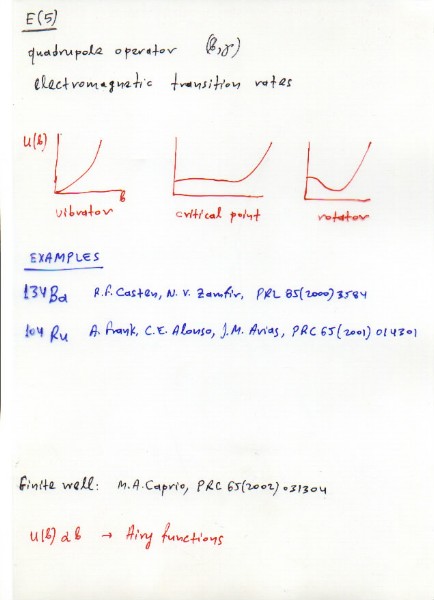 E(5)
quadrupole operator (β,γ)
electromagnetic transition rates
U(β)
β
vibrator critical point rotator
EXAMPLES
134Ba R.F. Casten, N.V. Zamfir, PRL 85(2000)3584
104Ru A. Frank, C.E. Alonso, J.M. Arias, PRC 65(2001)014301
finite well: M.A. Caprio, PRC 65(2002)031304
U(β) α β → Airy functions